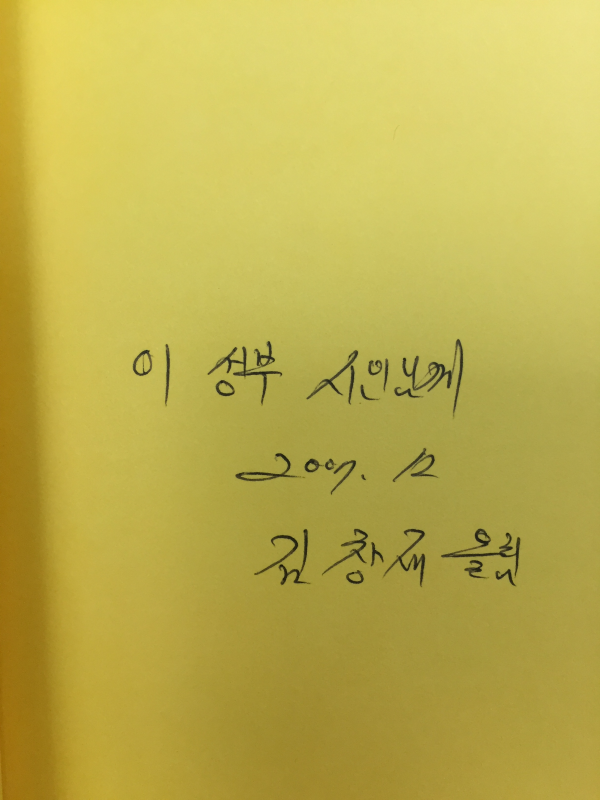 이 성부 시인님께
2007. 12
김 창재 올림